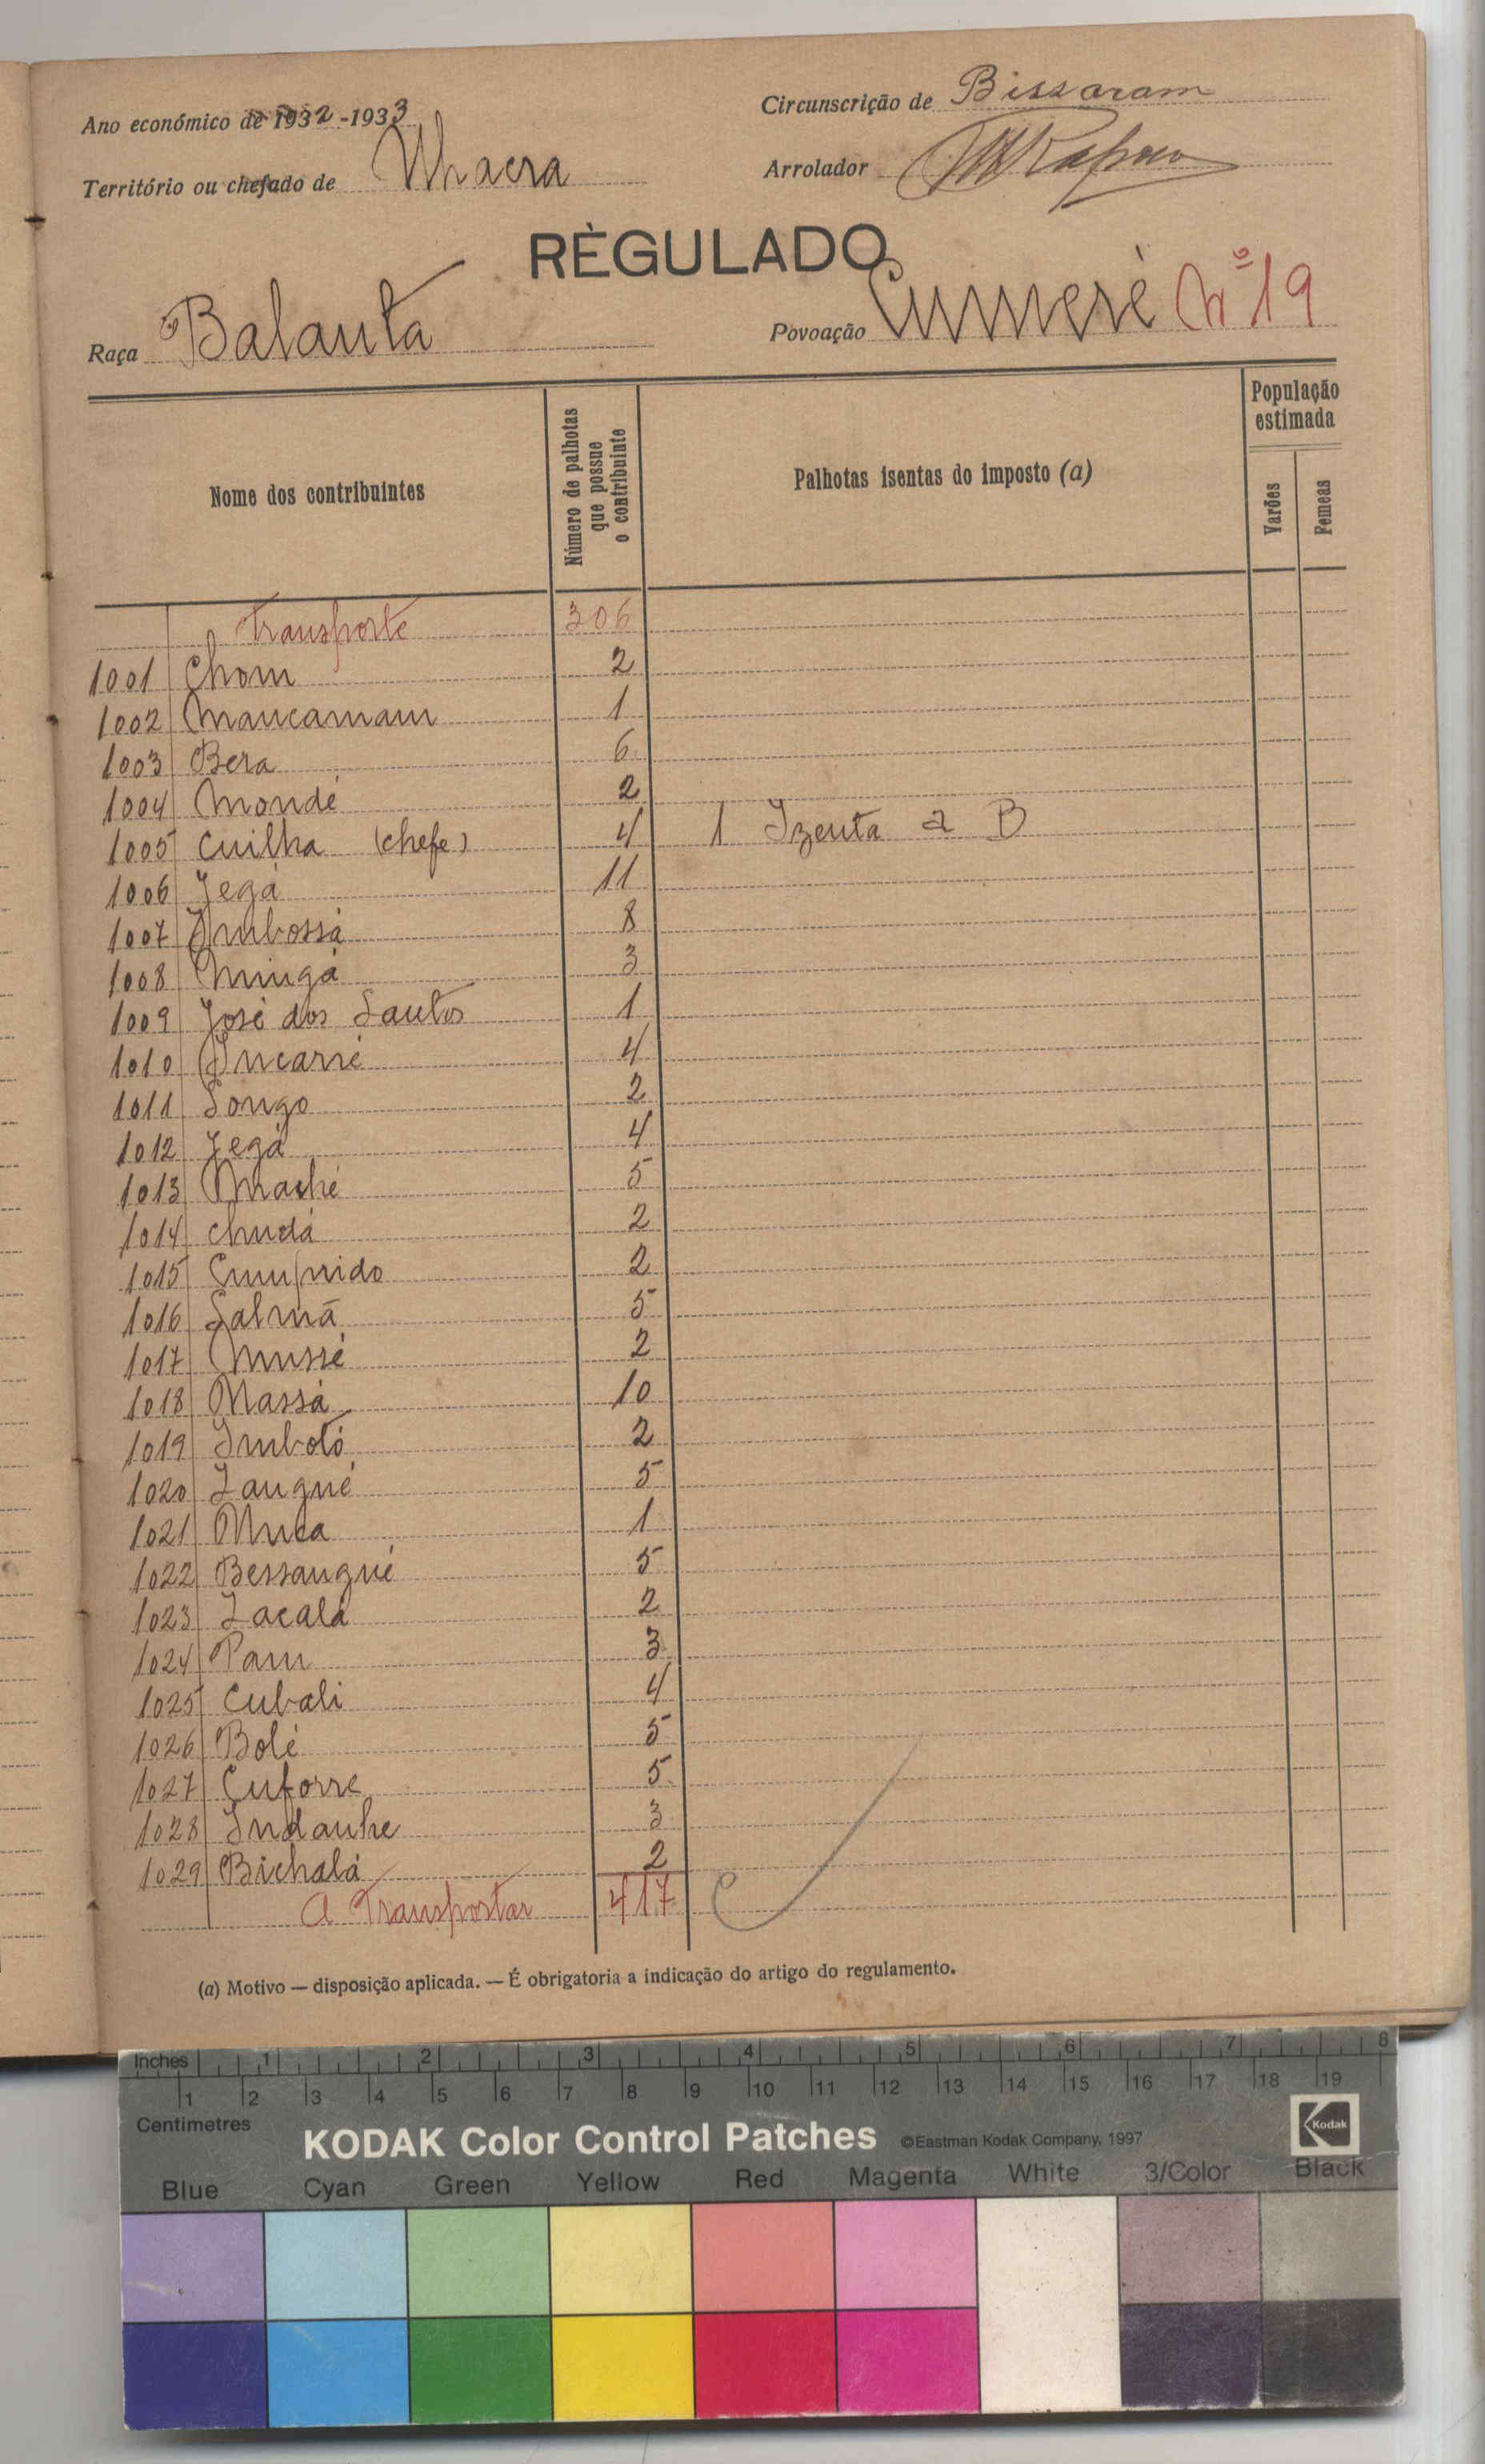 Ano económico de 1932-1933
Circunscrição de Bissoram
Território ou chefado de Nhacra
Arrolador
RÉGULADO
Raça Balanta
Povoação Cumeré Nº 19
Nome dos contribuintes
Número de palhotas
que possue
o contribuinte
Palhotas isentas do imposto (a)
População
estimada
Varões
Femeas
Transporte 306
1001 Chom 2
1002 Mancamam 1
1003 Bera 6
1004 Mondé 2
1005 Cuilha (chefe) 4 1 Izenta a B
1006 Jegá 11
1007 Imbossá 8
1008 Mingá 3
1009 José dos Santos 1
1010 Incarré 4
1011 Songo 2
1012 Jegá 4
1013 Maché 5
1014 chudá 2
1015 2
1016 Salmã 5
1017 Mussé 2
1018 Massá 10
1019 Imbotó 2
1020 Zangué 5
1021 1
1022 Bessangué 5
1023 Zacalá 2
1024 Pam 3
1025 Cubali 4
1026 Bolé 5
1027 Cuforre 5
1028 Indanhe 3
1029 Bichalá 2
A Transportar 417
(a) Motivo — disposição aplicada. — É obrigatoria a indicação do artigo do regulamento.
Inches 1 2 3 4 5 6 7 8
1 2 3 4 5 6 7 8 9 10 11 12 13 14 15 16 17 18 19
Centimetres
KODAK Color Control Patches ©Eastman Kodak Company, 1997 Kodak
Blue Cyan Green Yellow Red Magenta White 3/Color Black